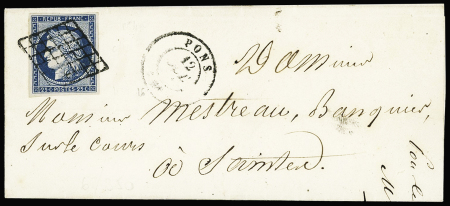 REPUB. FRANC.
25 C POSTES 25 C
PONS
12
Monsieur
Monsieur Mestreau, Banquier,
Sur le Cours
à Saintes.